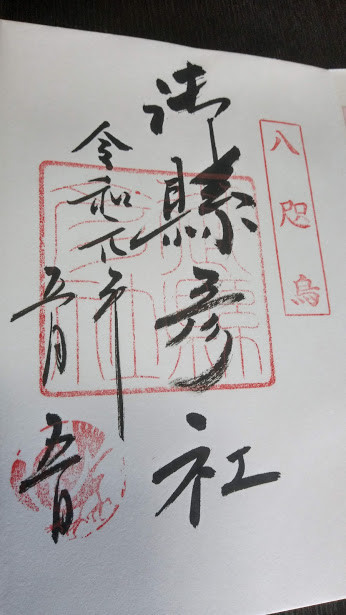 八咫烏
御縣彦社
令和元年
五月五日